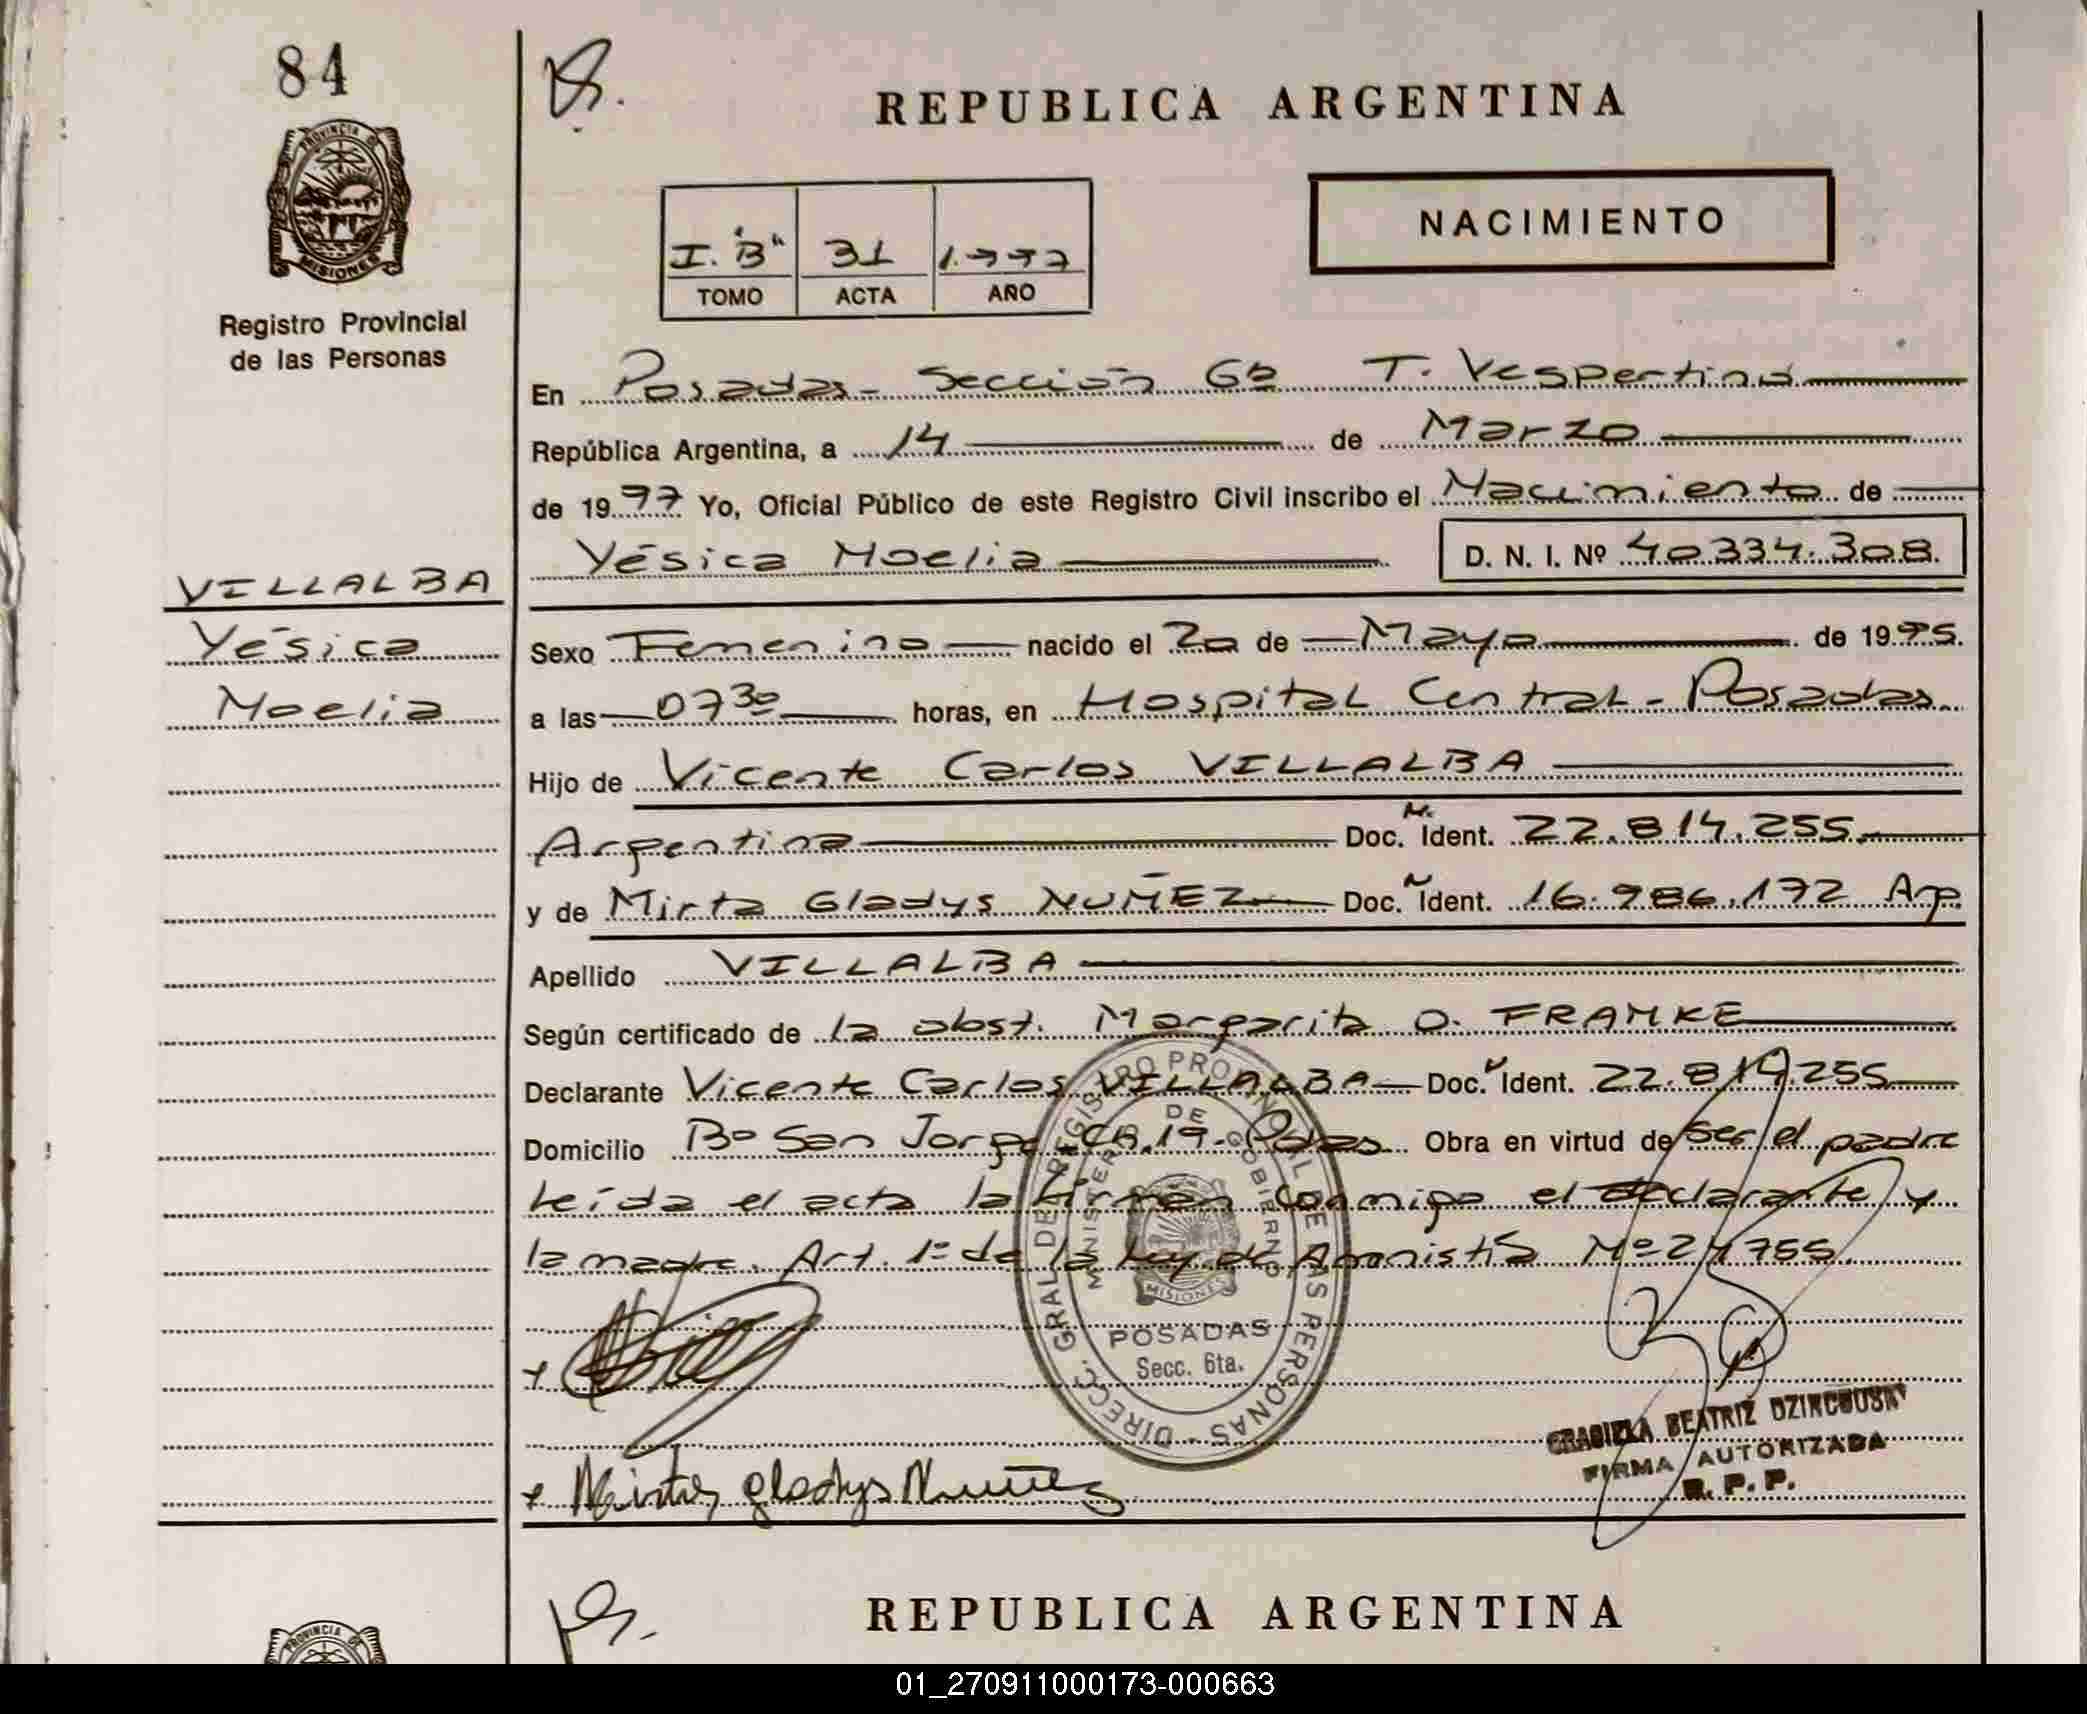 84
PROVINCIA DE
MISIONES
Registro Provincial
de las Personas
VILLALBA
Yésica
Noelia
REPUBLICA ARGENTINA
I. "B" 31 1.997
TOMO ACTA AÑO
NACIMIENTO
En Posadas - Sección 6ª T. Vespertino
República Argentina, a 14 de Marzo
de 1997 Yo, Oficial Público de este Registro Civil inscribo el Nacimiento de
Yésica Noelia D. N. I. Nº 40.334.308.
Sexo Femenino nacido el 20 de Mayo de 1995.
a las 07 30 horas, en Hospital Central - Posadas.
Hijo de Vicente Carlos VILLALBA
Argentino Doc. N. Ident. 22.814.255.
y de Mirta Gladys NUÑEZ Doc. N Ident. 16.986.172 Arg.
Apellido VILLALBA
Según certificado de la obst. Margarita O. FRANKE
Declarante Vicente Carlos VILLALBA Doc. N Ident. 22.814.255
Domicilio Bº San Jorge CA.19 - Pdas. Obra en virtud de ser el padre
leída el acta la firman conmigo el declarante y
la madre. Art. 1º de la Ley de Amnistía Nº 24755.
DIRECC. GRAL DE REGISTRO PROVINCIAL DE LAS PERSONAS -
MINISTERIO DE GOBIERNO
MISIONES
POSADAS
Secc. 6ta.
+
+ Mirta gladys Nuñez
GRACIELA BEATRIZ
FIRMA AUTORIZADA
R. P. P.
REPUBLICA ARGENTINA
PROVINCIA DE
01_270911000173-000663